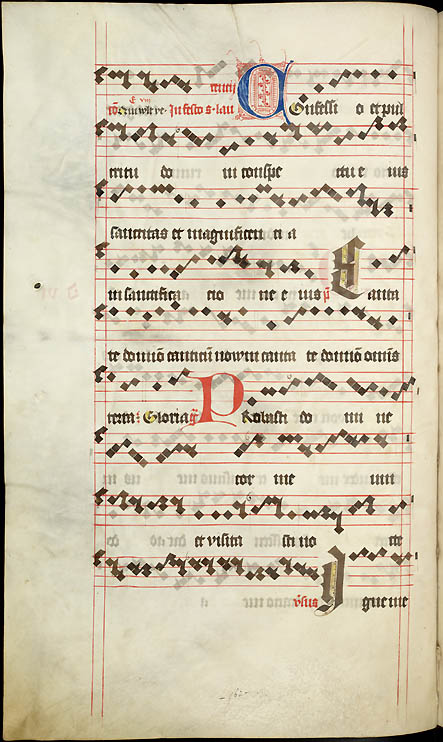 rentij
In festo s. lau Confessi o et pul
critu do in conspe ctu e ius
sanctitas et magnificen ti a
in sanctifica cio ne e ius p̄s Canta
te domīo canticū nouum canta te domīo omīs
terra. Gloria Probasti do mi ne
cor me um
et visita sti no cte
v̄sus Igne me